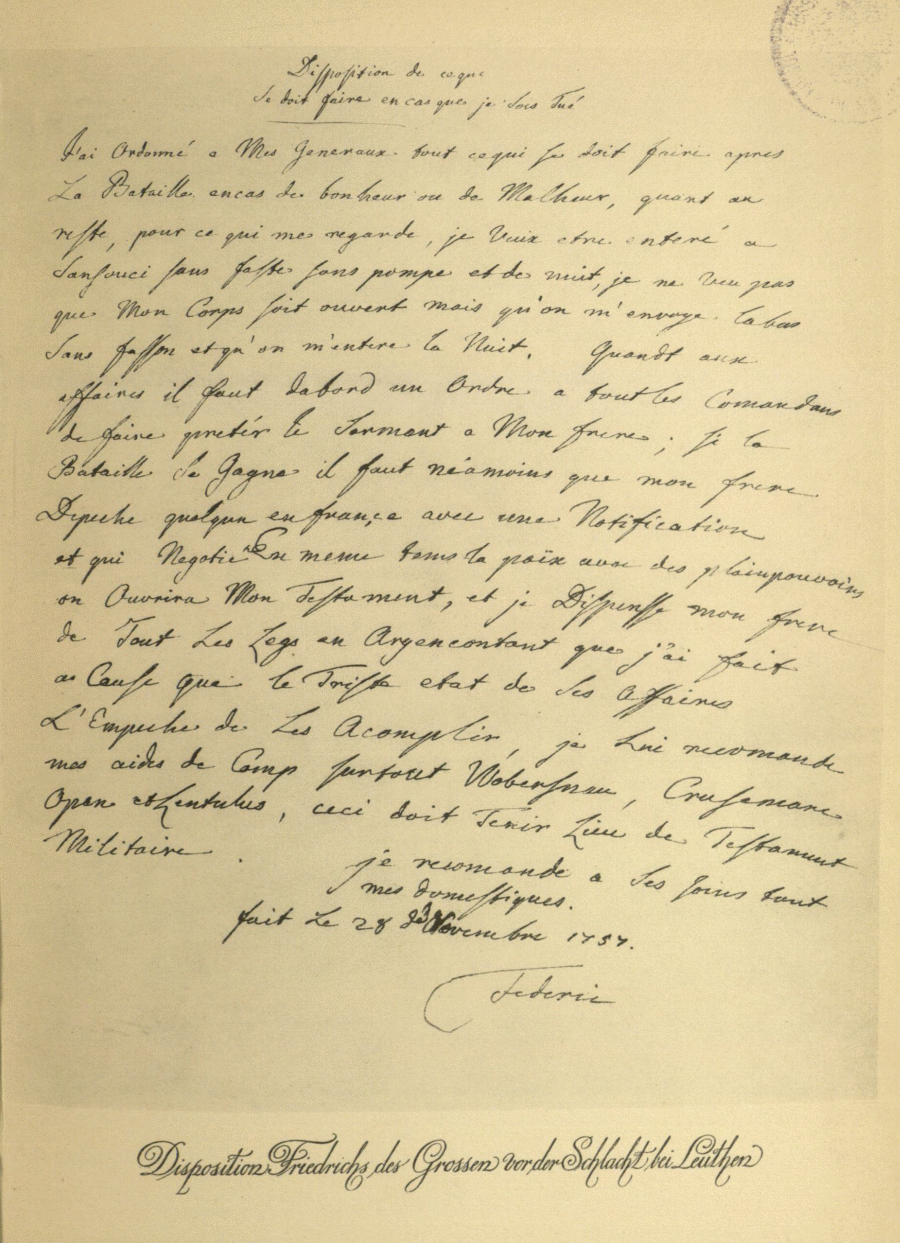 Disposition de ceque
se doit faire en cas que je sois Tué
J'ai Ordonné a Mes Generaux tout cequi se doit faire apres
La Bataille encas de bonheur ou de Malheur, quant au
reste, pour ce qui me regarde, je Veux etre enteré a
Sansouci sans faste sans pompe et de nuit, je ne veu pas
que Mon Corps soit ouvert mais qu'on m'envoye labas
sans fasson et qu'on m'entere la Nuit. Quandt aux
affaires il faut dabord un Ordre a tout les Comandans
de faire pretér le Sermant a Mon frere; si la
Bataille se Gagne il faut néamoins que mon frere
Depeche quelqun en france avec une Notification
et qui Negotie en meme tems la païx avec des plainpouvoirs
on Ouvrira Mon Testament, et je Dispensse mon frere
de Tout Les Legs en Argencontant que j'ai fait
a Cause que le Triste etat de ses affaires
L'Empeche de Les Acomplir, je Lui recomande
mes aides de Camp surtout Wobersnau, Crusemarc
Open et Lentulus, ceci doit Tenir Lieu de Testament
Militaire.
je recomande a ses soins tout
mes domestiques.
fait le 28 de Novembre 1757.
Federic
Disposition Friedrichs des Grossen vor der Schlacht bei Leuthen